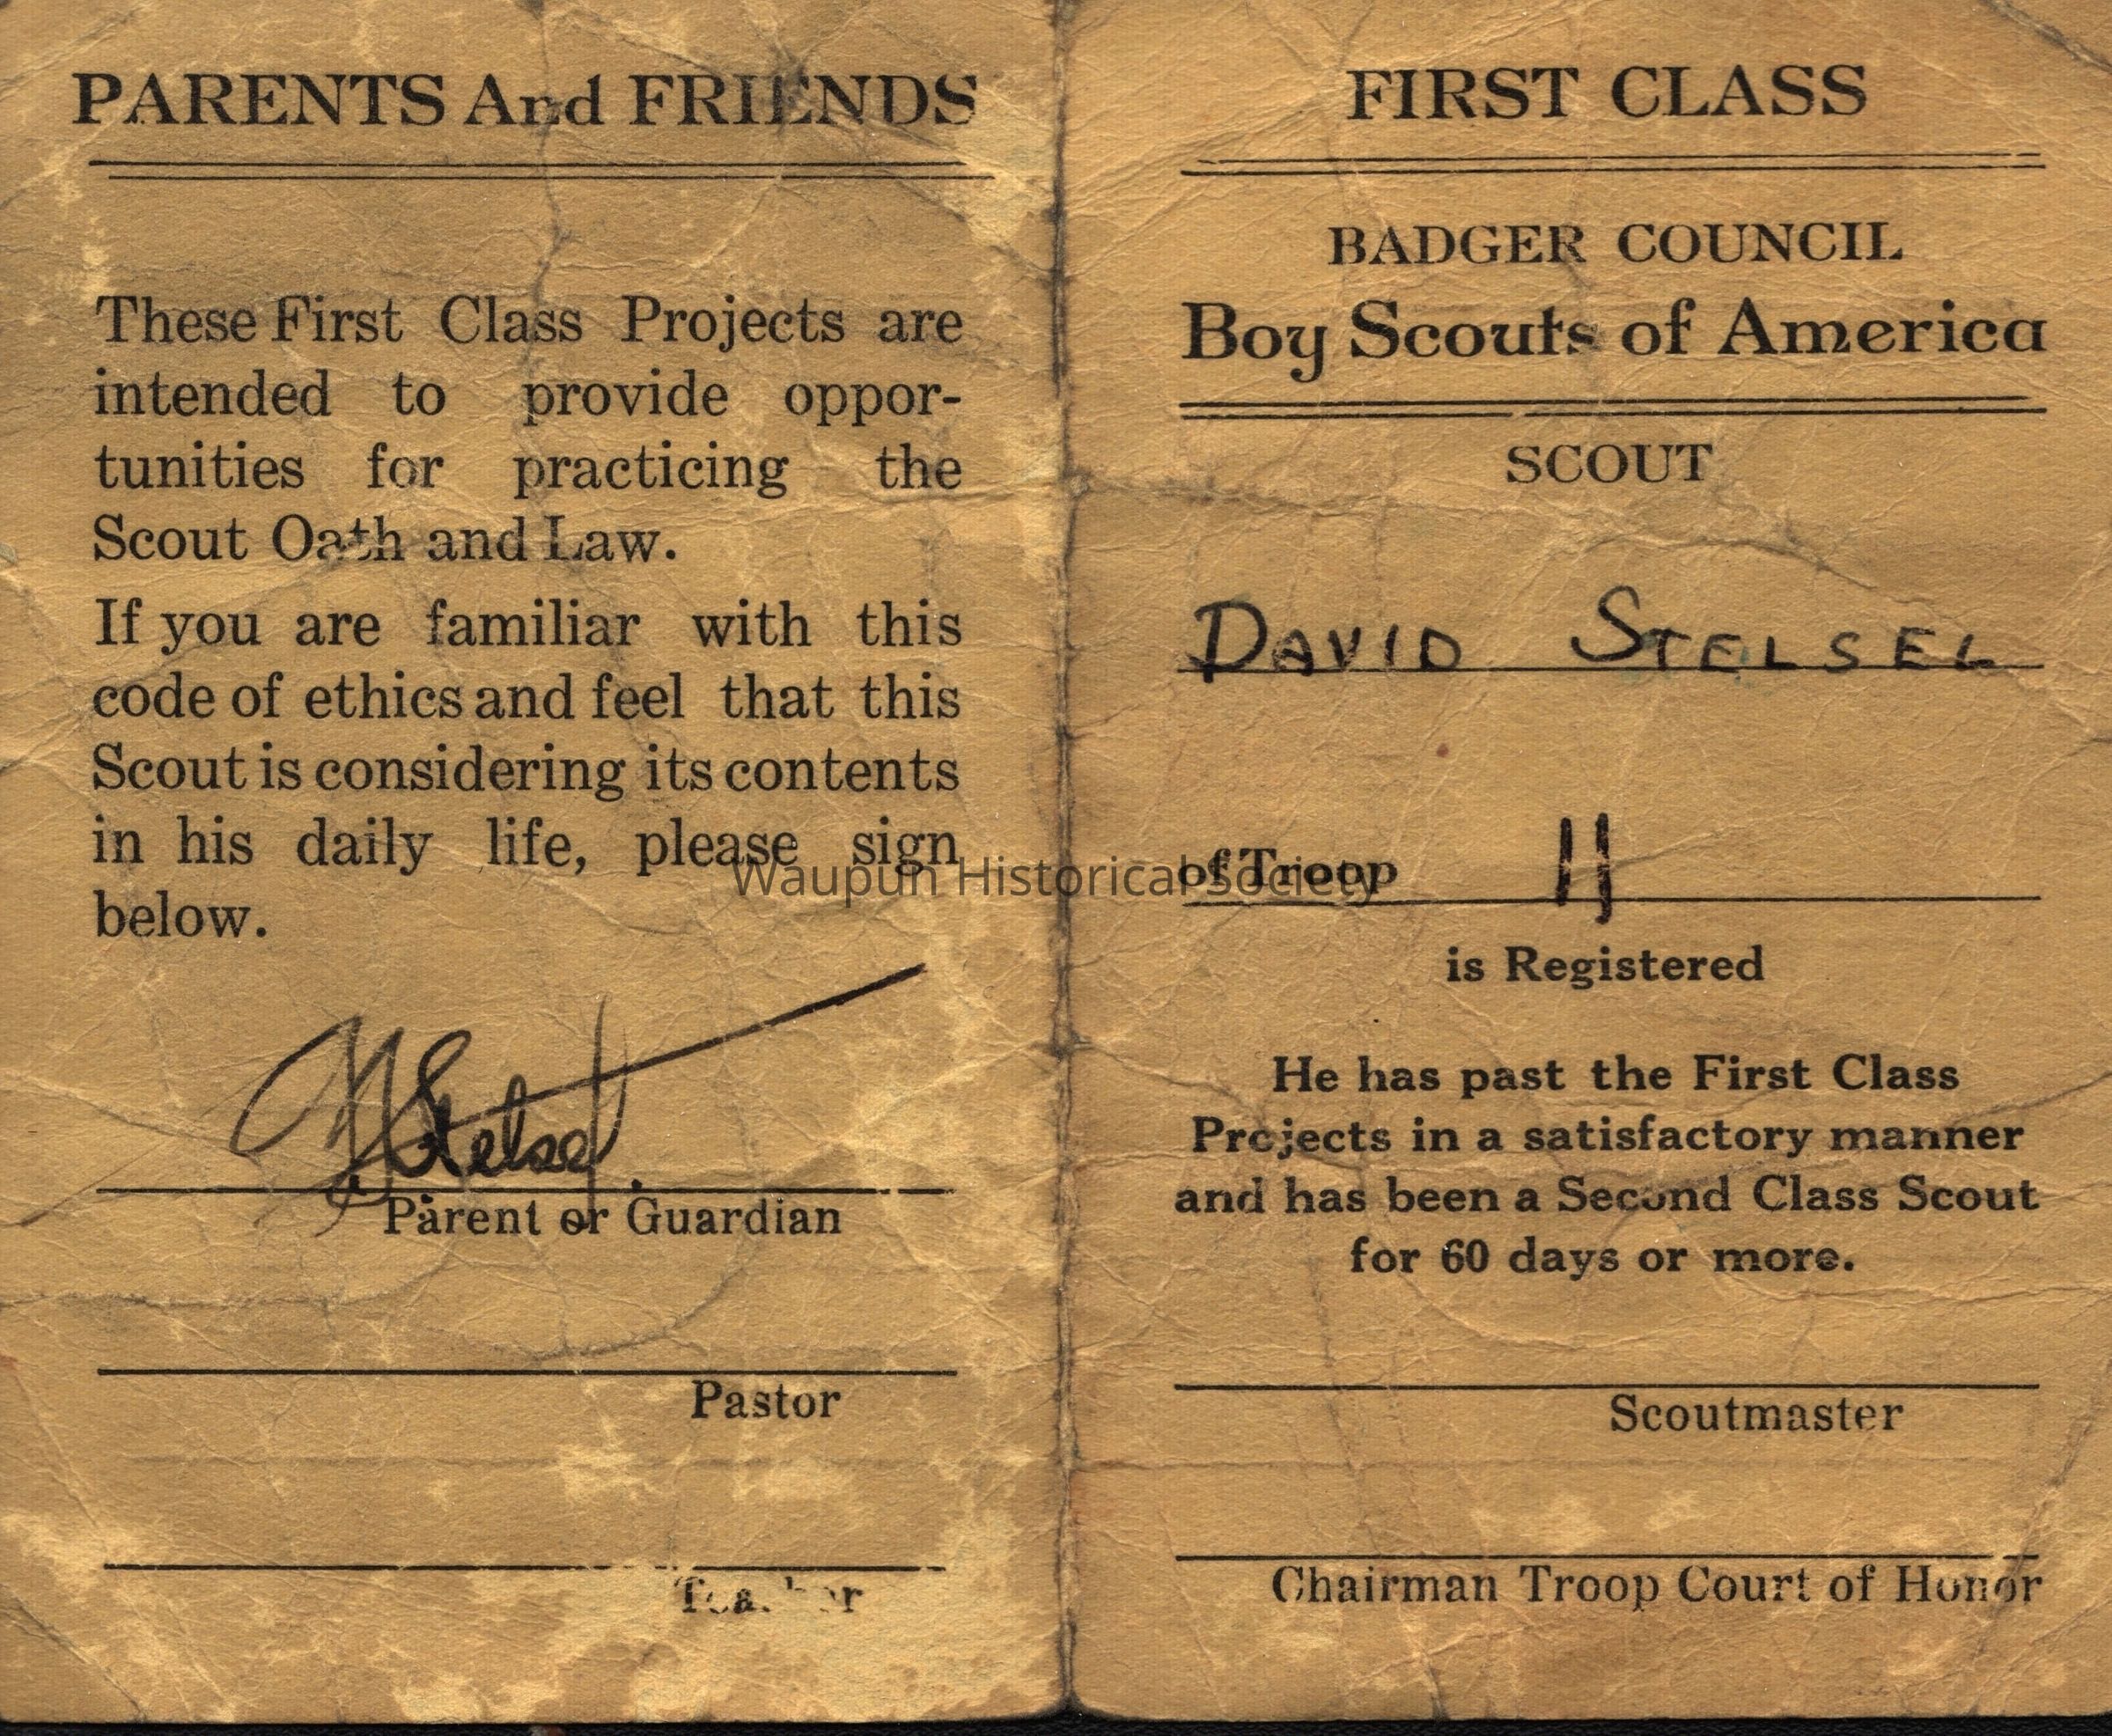 PARENTS And FRIENDS
These First Class Projects are
intended to provide oppor-
tunities for practicing the
Scout Oath and Law.
If you are familiar with this
code of ethics and feel that this
Scout is considering its contents
in his daily life, please sign
below.
Stelsel
Parent or Guardian
Pastor
Teacher
FIRST CLASS
BADGER COUNCIL
Boy Scouts of America
SCOUT
DAVID STELSEL
of Troop 11
is Registered
He has past the First Class
Projects in a satisfactory manner
and has been a Second Class Scout
for 60 days or more.
Scoutmaster
Chairman Troop Court of Honor
Waupun Historical Society